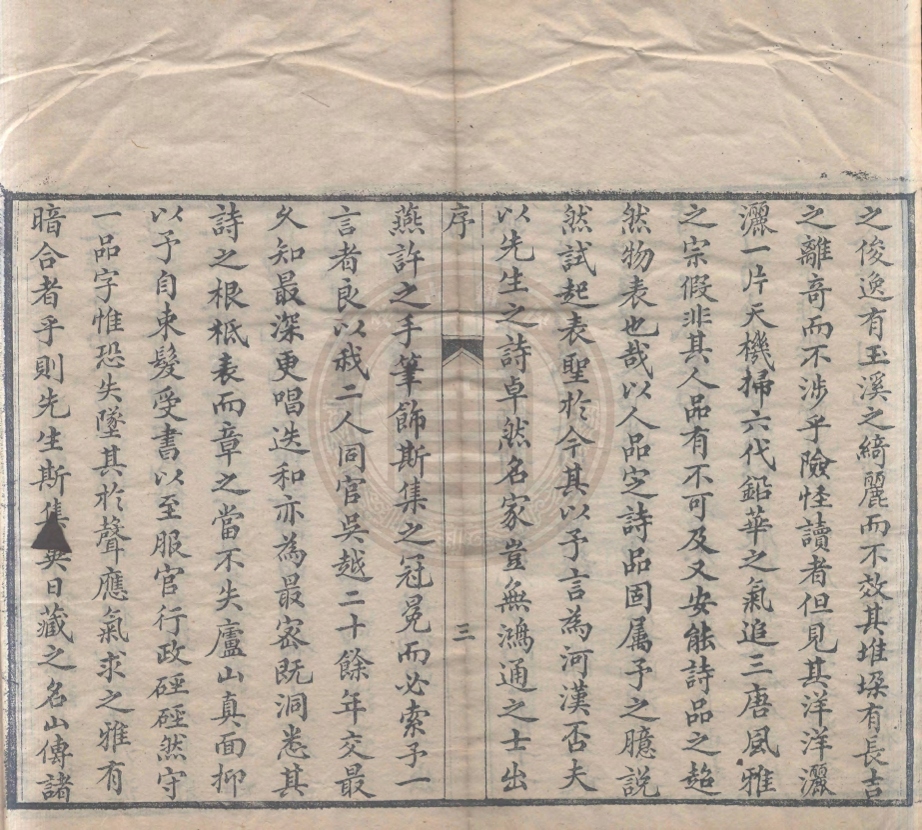 之俊逸有玉溪之綺麗而不效其堆垜有長吉
之離奇而不涉乎險怪讀者但見其洋洋灑
灑一片天機掃六代鉛華之氣追三唐風雅
之宗假非其人品有不可及又安能詩品之超
然物表也哉以人品定詩品固属予之臆説
然試起表聖於今其以予言為河漢否夫
以先生之詩卓然名家豈無鴻通之士出
序
三
燕許之手筆飾斯集之冠冕而必索予一
言者良以我二人同官吳越二十餘年交最
久知最深更唱迭和亦為最密既洞悉其
詩之根柢表而章之當不失廬山真面抑
以予自束髮受書以至服官行政硜硜然守
一品字惟恐失墜其於聲應氣求之雅有
暗合者乎則先生斯集異日藏之名山傳諸